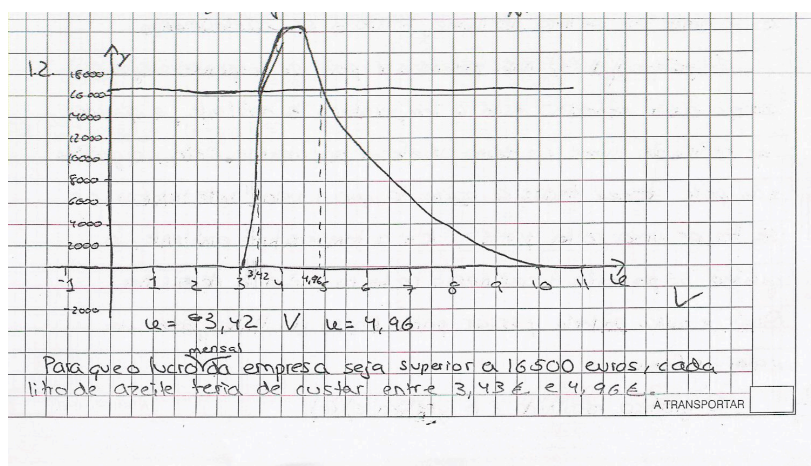 1.2.
y
18000
16000
14000
12000
10000
8000
6000
4000
2000
-1 1 2 3 3,42 4 4,96 5 6 7 8 9 10 11 x
-2000
x = 3,42 V x = 4,96
mensal
Para que o lucro da empresa seja superior a 16500 euros, cada
litro de azeite teria de custar entre 3,43€ e 4,96€.
A TRANSPORTAR